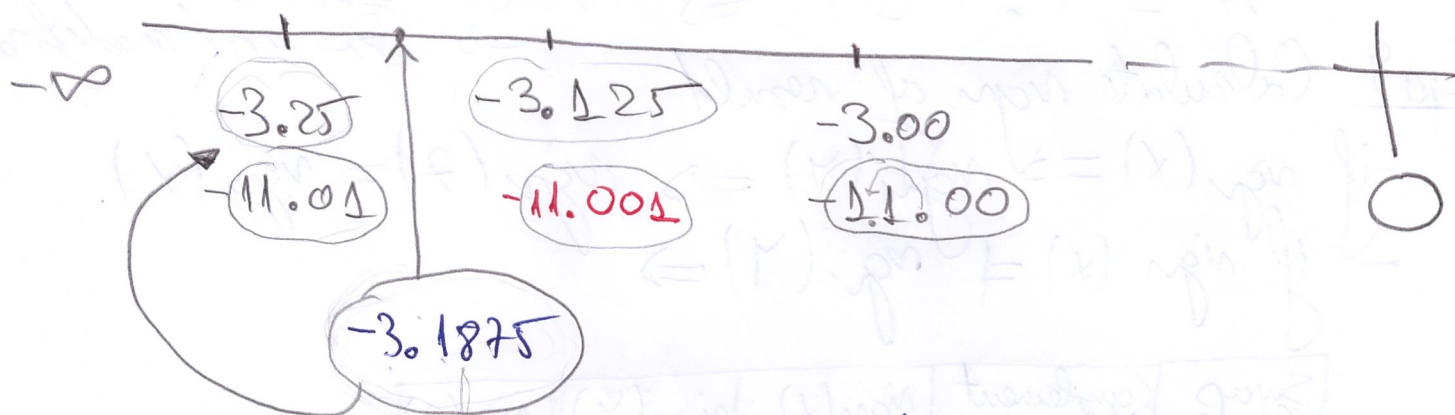 -∞
-3.25 -3.125 -3.00
-11.01 -11.001 -11.00
0
-3.1875